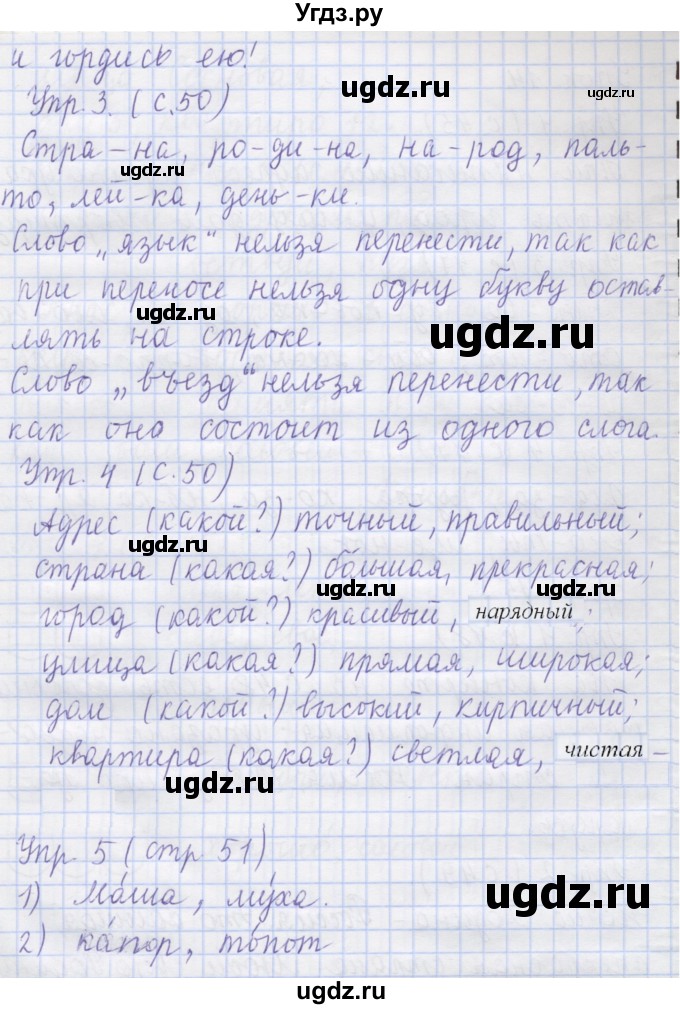 Угдз.ру
и гордись ею!
ugdz.ru
Упр. 3. (с.50)
ugdz.ru
Стра-на, ро-ди-на, на-род, паль-
ugdz.ru
то, лей-ка, день-ки.
Слово „язык“ нельзя перенести, так как
при переносе нельзя одну букву остав-
ugdz.ru
ugdz.ru
лять на строке.
Слово „въезд“ нельзя перенести, так
как оно состоит из одного слога.
Упр. 4 (с.50)
Адрес (какой?) точный, правильный;
ugdz.ru
страна (какая?) большая, прекрасная;
ugdz.ru
город (какой?) красивый, нарядный;
улица (какая?) прямая, широкая;
дом (какой?) высокий, кирпичный;
квартира (какая?) светлая, чистая –
ugdz.ru
Упр. 5 (стр 51)
1) Ма́ша, му́ха.
ugdz.ru
2) ка́пор, то́пот
ugdz.ru